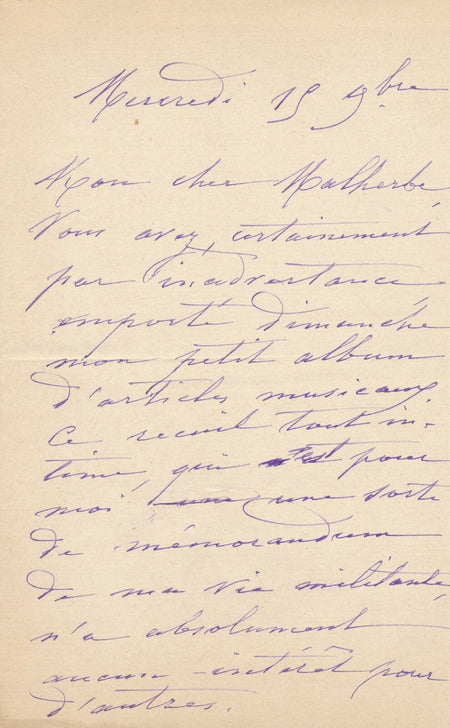 Mercredi 15 9bre
Mon cher Malherbe,
Vous avez, certainement
par inadvertance,
emporté dimanche
mon petit album
d'articles musicaux.
Ce recueil tout in-
time, qui est pour
moi une sorte
de mémorandum
de ma vie militante,
n'a absolument
aucun intérêt pour
d'autres.